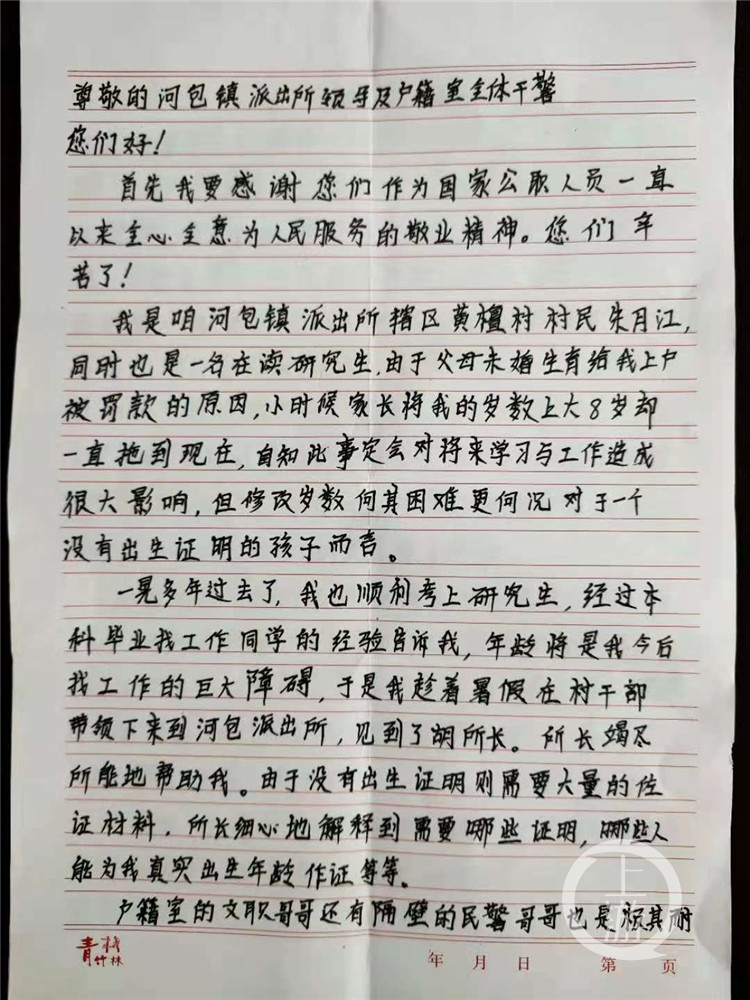 尊敬的河包镇派出所领导及户籍室全体干警
您们好！
首先我要感谢您们作为国家公职人员一直
以来全心全意为人民服务的敬业精神。您们辛
苦了！
我是咱河包镇派出所辖区黄檀村村民朱月江，
同时也是一名在读研究生，由于父母未婚生育给我上户
被罚款的原因，小时候家长将我的岁数上大8岁却
一直拖到现在，自知此事定会对将来学习与工作造成
很大影响，但修改岁数何其困难更何况对于一个
没有出生证明的孩子而言。
一晃多年过去了，我也顺利考上研究生，经过本
科毕业找工作同学的经验告诉我，年龄将是我今后
找工作的巨大障碍，于是我趁着暑假在村干部
带领下来到河包派出所，见到了胡所长。所长竭尽
所能地帮助我。由于没有出生证明则需要大量的佐
证材料，所长细心地解释到需要哪些证明，哪些人
能为我真实出生年龄作证等等。
户籍室的文职哥哥还有隔壁的民警哥哥也是极其耐
青竹林
年 月 日 第 页
上游